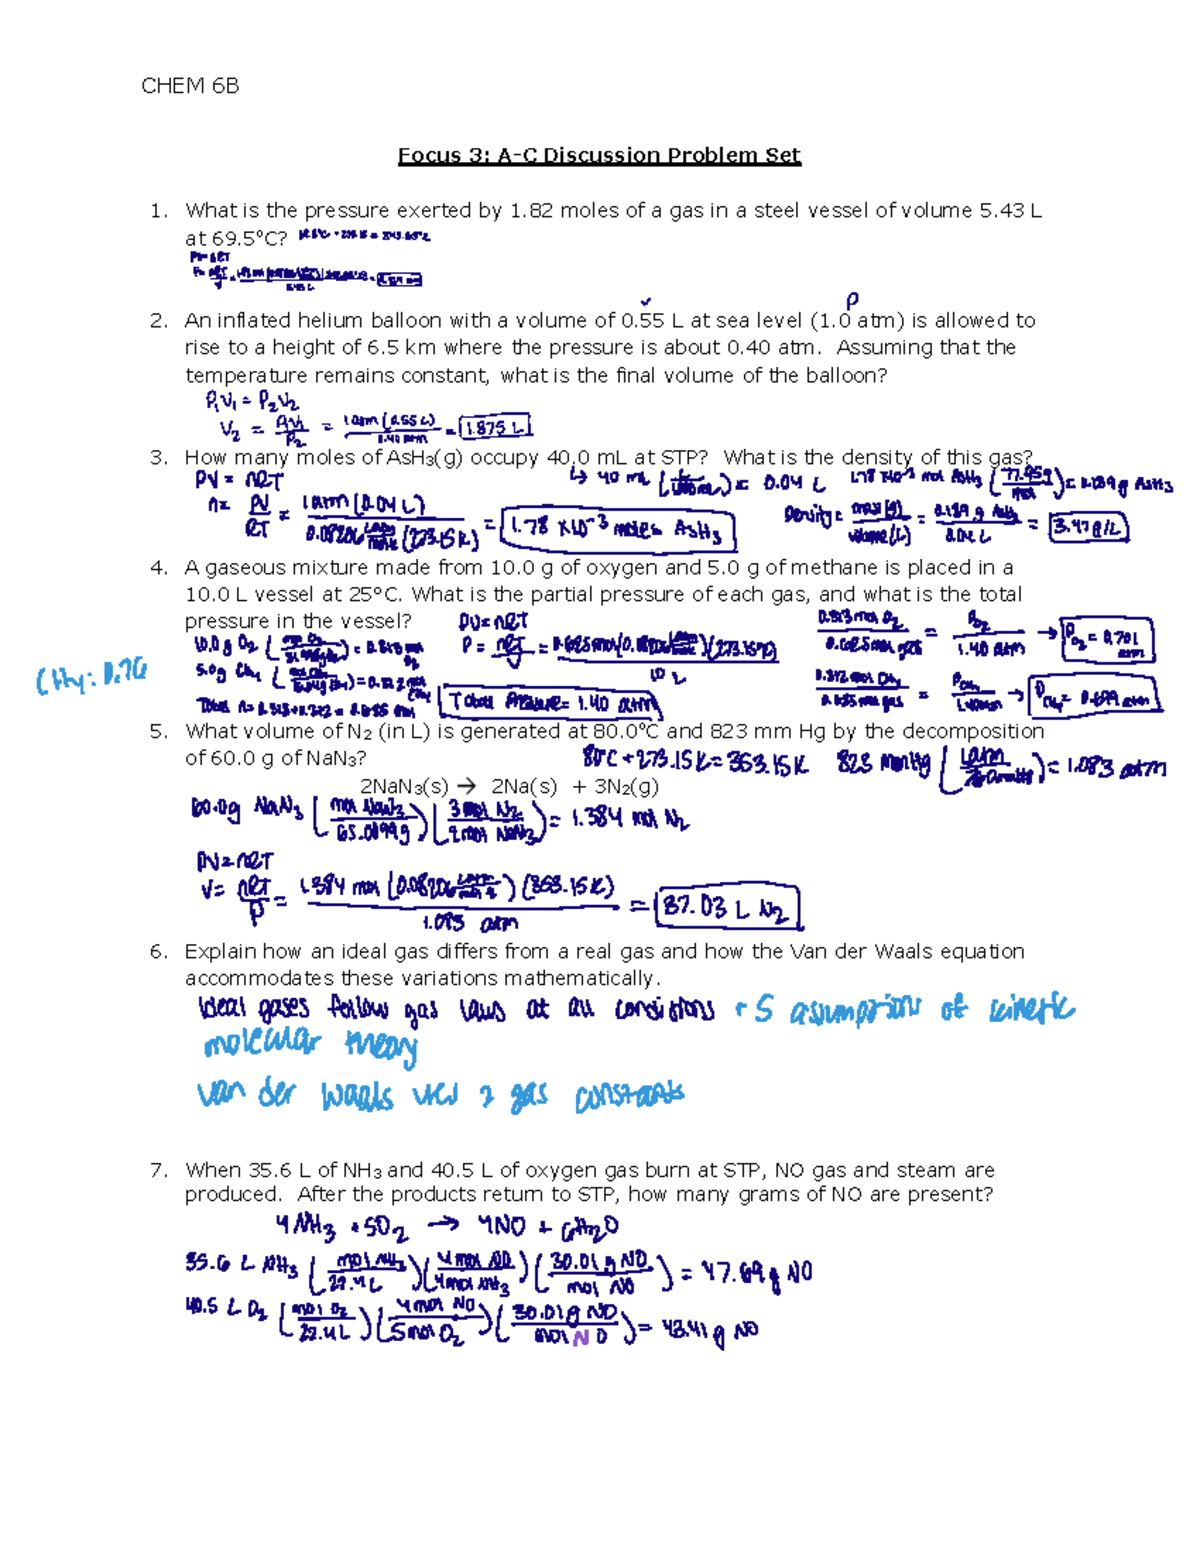 CHEM 6B
Focus 3: A-C Discussion Problem Set
1. What is the pressure exerted by 1.82 moles of a gas in a steel vessel of volume 5.43 L
at 69.5°C?
PV=nRT
P
2. An inflated helium balloon with a volume of 0.55 L at sea level (1.0 atm) is allowed to
rise to a height of 6.5 km where the pressure is about 0.40 atm. Assuming that the
temperature remains constant, what is the final volume of the balloon?
P₁V₁ = P₂V₂
V₂ = P₁V₁/P₂ = 1 atm (0.55 L)/0.40 atm = 1.875 L
3. How many moles of AsH₃(g) occupy 40.0 mL at STP? What is the density of this gas?
PV = nRT
↳ 40 mL = 0.04 L
1.78 x10⁻³ mol AsH₃ (77.95g/mol) = 0.139 g AsH₃
n = PV/RT = 1 atm (0.04 L)/0.08206 (273.15 K) = 1.78 x10⁻³ moles AsH₃
Density = mass (g)/volume (L) = 0.139 g AsH₃/0.04 L = 3.47 g/L
4. A gaseous mixture made from 10.0 g of oxygen and 5.0 g of methane is placed in a
10.0 L vessel at 25°C. What is the partial pressure of each gas, and what is the total
pressure in the vessel?
PV=nRT
10.0 g O₂ = 0.313 mol O₂
P = nRT/V = (273.15K)/10 L
0.313 mol O₂/0.625 mol gas = P O₂/1.40 atm → P O₂ = 0.701 atm
CH₄: 0.76
5.0g CH₄ = 0.312 mol CH₄
Total Pressure = 1.40 atm
0.312 mol CH₄ = P CH₄ → P CH₄ = 0.699 atm
5. What volume of N₂ (in L) is generated at 80.0°C and 823 mm Hg by the decomposition
of 60.0 g of NaN₃?
80°C + 273.15K = 353.15K
823 mmHg = 1.083 atm
2NaN₃(s) → 2Na(s) + 3N₂(g)
60.0g NaN₃ (mol NaN₃/65.0099g)(3 mol N₂/2 mol NaN₃) = 1.384 mol N₂
PV=nRT
V = nRT/P = 1.384 mol (0.08206)(353.15K)/1.083 atm = 37.03 L N₂
6. Explain how an ideal gas differs from a real gas and how the Van der Waals equation
accommodates these variations mathematically.
Ideal gases follow gas laws at all conditions + 5 assumptions of kinetic
molecular theory
van der Waals uses 2 gas constants
7. When 35.6 L of NH₃ and 40.5 L of oxygen gas burn at STP, NO gas and steam are
produced. After the products return to STP, how many grams of NO are present?
4NH₃ + 5O₂ → 4NO + 6H₂O
35.6 L NH₃ (mol NH₃/22.4L)(4 mol NO/4 mol NH₃)(30.01 g NO/mol NO) = 47.69 g NO
40.5 L O₂ (mol O₂/22.4L)(4 mol NO/5 mol O₂)(30.01g NO/mol NO) = 43.41 g NO